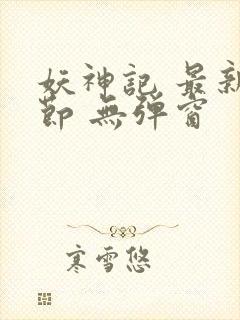 妖神記 最新
節 無彈窗
寒雪悠